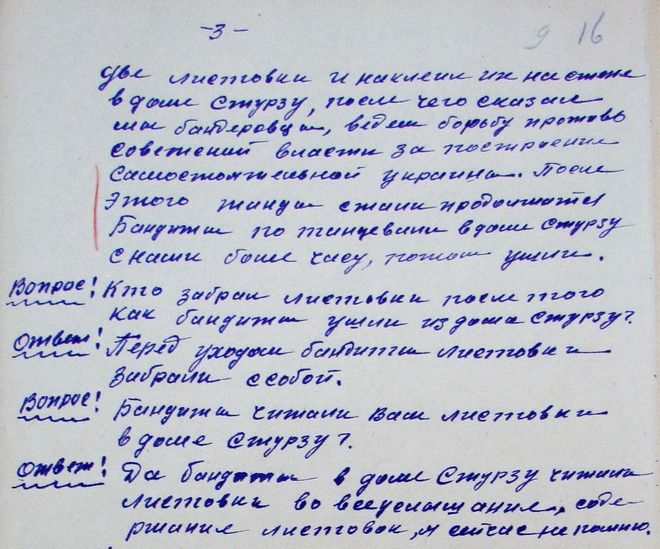 -3-
9 16
две листовки и наклеил их на стене
в доме Стурзу, после чего сказал
мы бандеровцы, ведем борьбу против
советской власти за построение
самостоятельной украины. После
этого танцы стали продолжатся
Бандиты по танцевали в доме Стурзу
с нами более часу, потом ушли.
Вопрос! Кто забрал листовки после того
как бандиты ушли из дома Стурзу?
Ответ! Перед уходом бандиты листовки
забрали с собой.
Вопрос! Бандиты читали Вам листовки
в доме Стурзу?
Ответ! Да бандиты в доме Стурзу читали
листовки во всеуслышание, соде-
ржание листовок, я сейчас не помню.